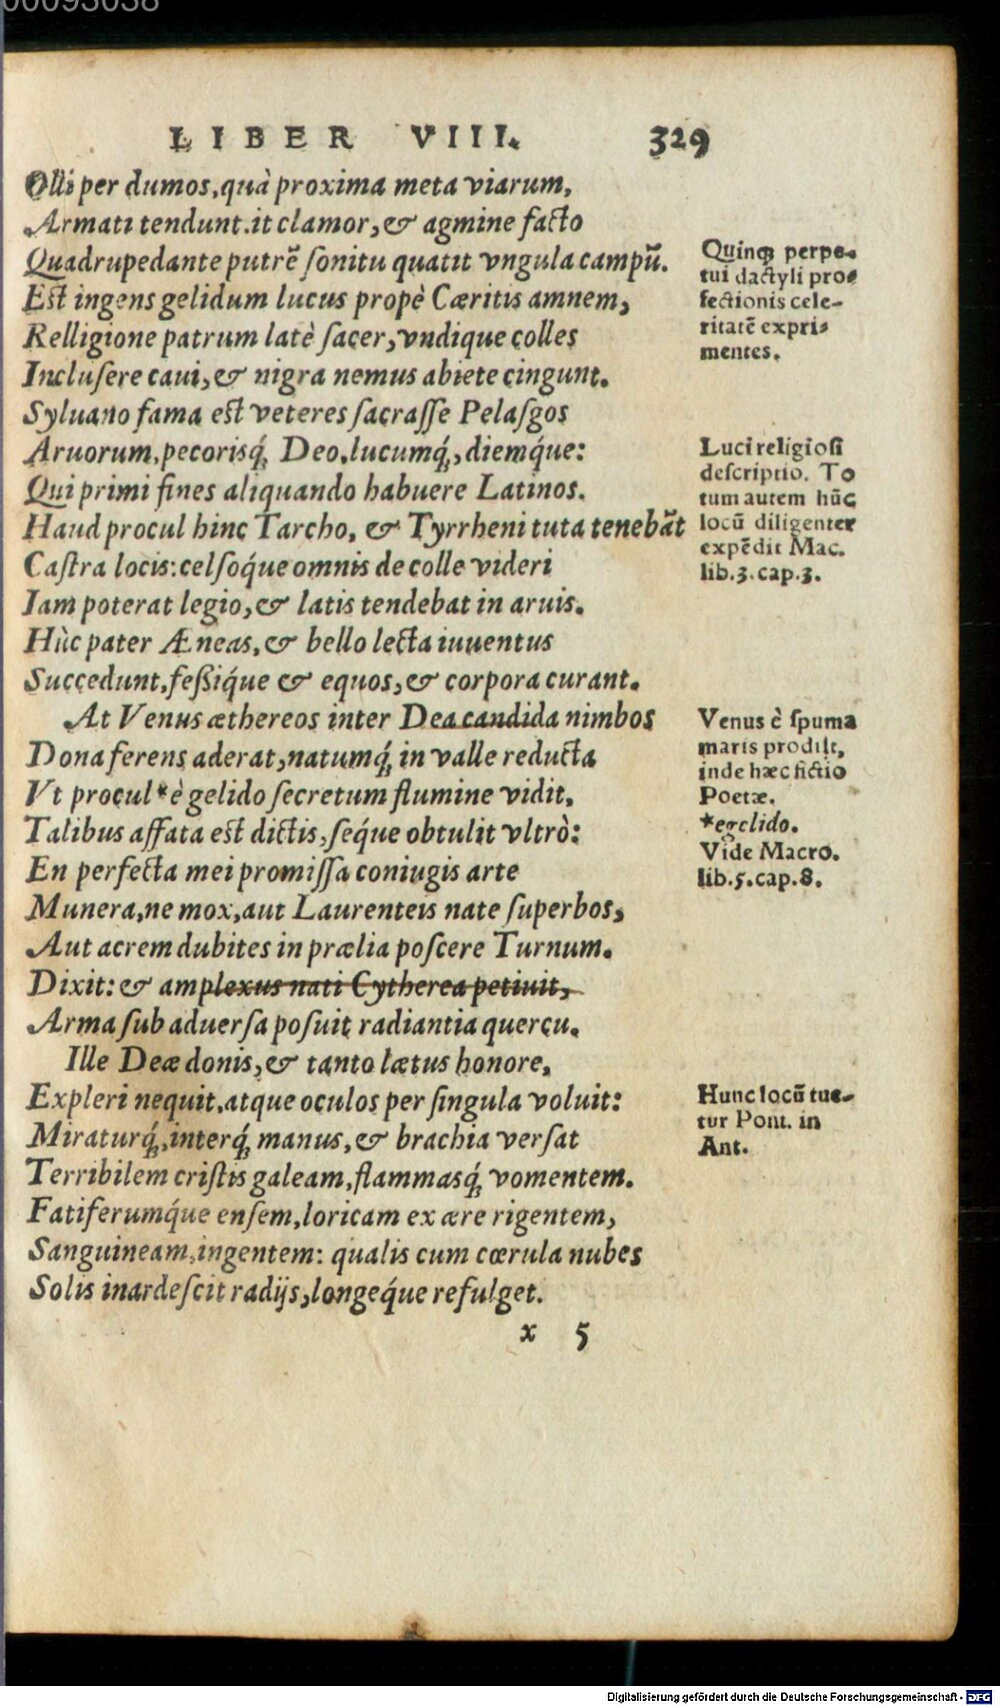 00093038
LIBER VIII. 329
Olli per dumos, quà proxima meta viarum,
Armati tendunt. it clamor, & agmine facto
Quadrupedante putrẽ ſonitu quatit vngula campũ.
Eſt ingens gelidum lucus propè Cæritis amnem,
Relligione patrum latè ſacer, vndique colles
Incluſere caui, & nigra nemus abiete cingunt.
Syluano fama eſt veteres ſacraſſe Pelaſgos
Aruorum, pecorisq́; Deo, lucumq́;, diemq́ue:
Qui primi fines aliquando habuere Latinos.
Haud procul hinc Tarcho, & Tyrrheni tuta tenebãt
Caſtra locis: celſoq́ue omnis de colle videri
Iam poterat legio, & latis tendebat in aruis.
Hùc pater Æneas, & bello lecta iuuentus
Succedunt, feßiq́ue & equos, & corpora curant.
At Venus æthereos inter Dea candida nimbos
Dona ferens aderat, natumq́; in valle reducta
Vt procul *è gelido ſecretum flumine vidit,
Talibus affata eſt dictis, ſeq́ue obtulit vltrò:
En perfecta mei promiſſa coniugis arte
Munera, ne mox, aut Laurenteis nate ſuperbos,
Aut acrem dubites in prælia poſcere Turnum.
Dixit: & amplexus nati Cytherea petiuit,
Arma ſub aduerſa poſuit radiantia quercu.
Ille Deæ donis, & tanto lætus honore,
Expleri nequit, atque oculos per ſingula voluit:
Miraturq́;, interq́; manus, & brachia verſat
Terribilem criſtis galeam, flammasq́; vomentem.
Fatiferumq́ue enſem, loricam ex ære rigentem,
Sanguineam, ingentem: qualis cum cœrula nubes
Solis inardeſcit radijs, longeq́ue refulget.
x 5
Quinq; perpe-
tui dactyli pro-
fectionis cele-
ritatẽ expri-
mentes.
Luci religioſi
deſcriptio. To
tum autem hũc
locũ diligenter
expẽdit Mac.
lib.3.cap.3.
Venus è ſpuma
maris prodijt,
inde hæc fictio
Poetæ.
*egelido.
Vide Macro.
lib.5.cap.8.
Hunc locũ tue-
tur Pont. in
Ant.
Digitalisierung gefördert durch die Deutsche Forschungsgemeinschaft - DFG